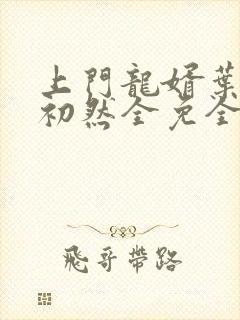 上門龍婿葉
初然全免全
飛哥帶路